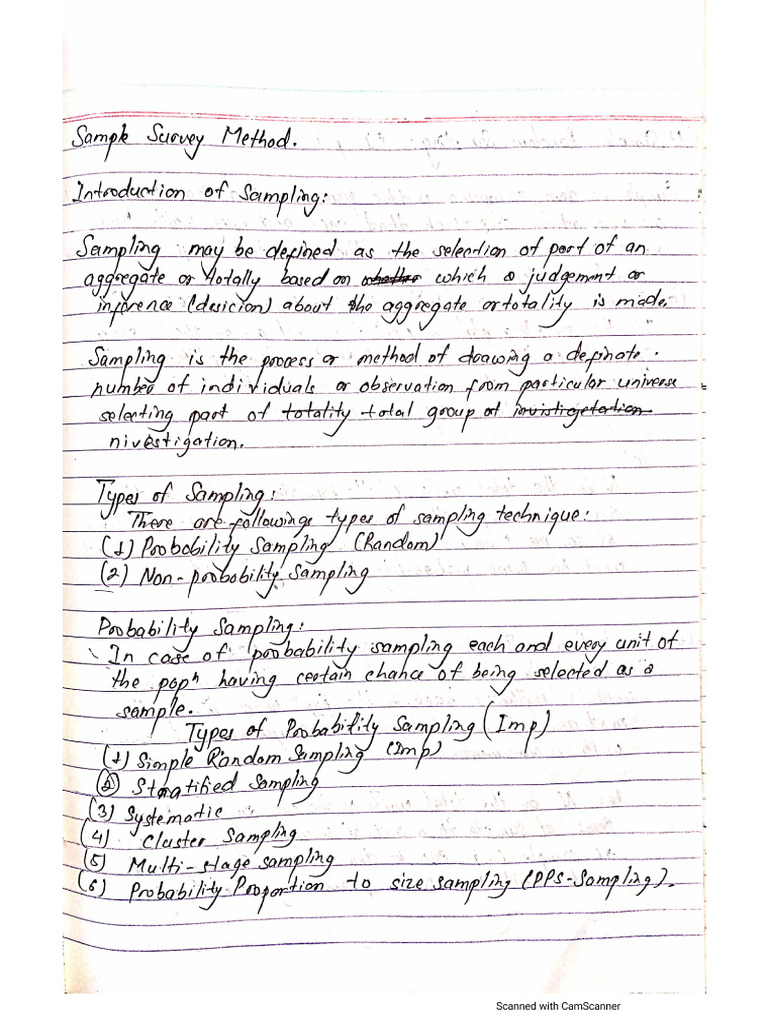 Sample Survey Method.
Introduction of Sampling:
Sampling may be defined as the selection of part of an
aggregate or totally based on whether which a judgement or
inference (desicion) about the aggregate or totality is made.
Sampling is the process or method of drawing a definate
number of individuals or observation from particular universe
selecting part of totality total group of invistigetation
nivestigation.
Types of Sampling:
There are followings types of sampling technique:
(1) Probability Sampling (Random)
(2) Non-probability Sampling
Probability Sampling:
In case of probability sampling each and every unit of
the popⁿ having certain chance of being selected as a
sample.
Types of Probability Sampling (Imp)
(1) Simple Random Sampling (Imp)
(2) Stratified Sampling
(3) Systematic
(4) Cluster Sampling
(5) Multi-stage sampling
(6) Probability Proportion to size sampling (PPS-Sampling).
Scanned with CamScanner